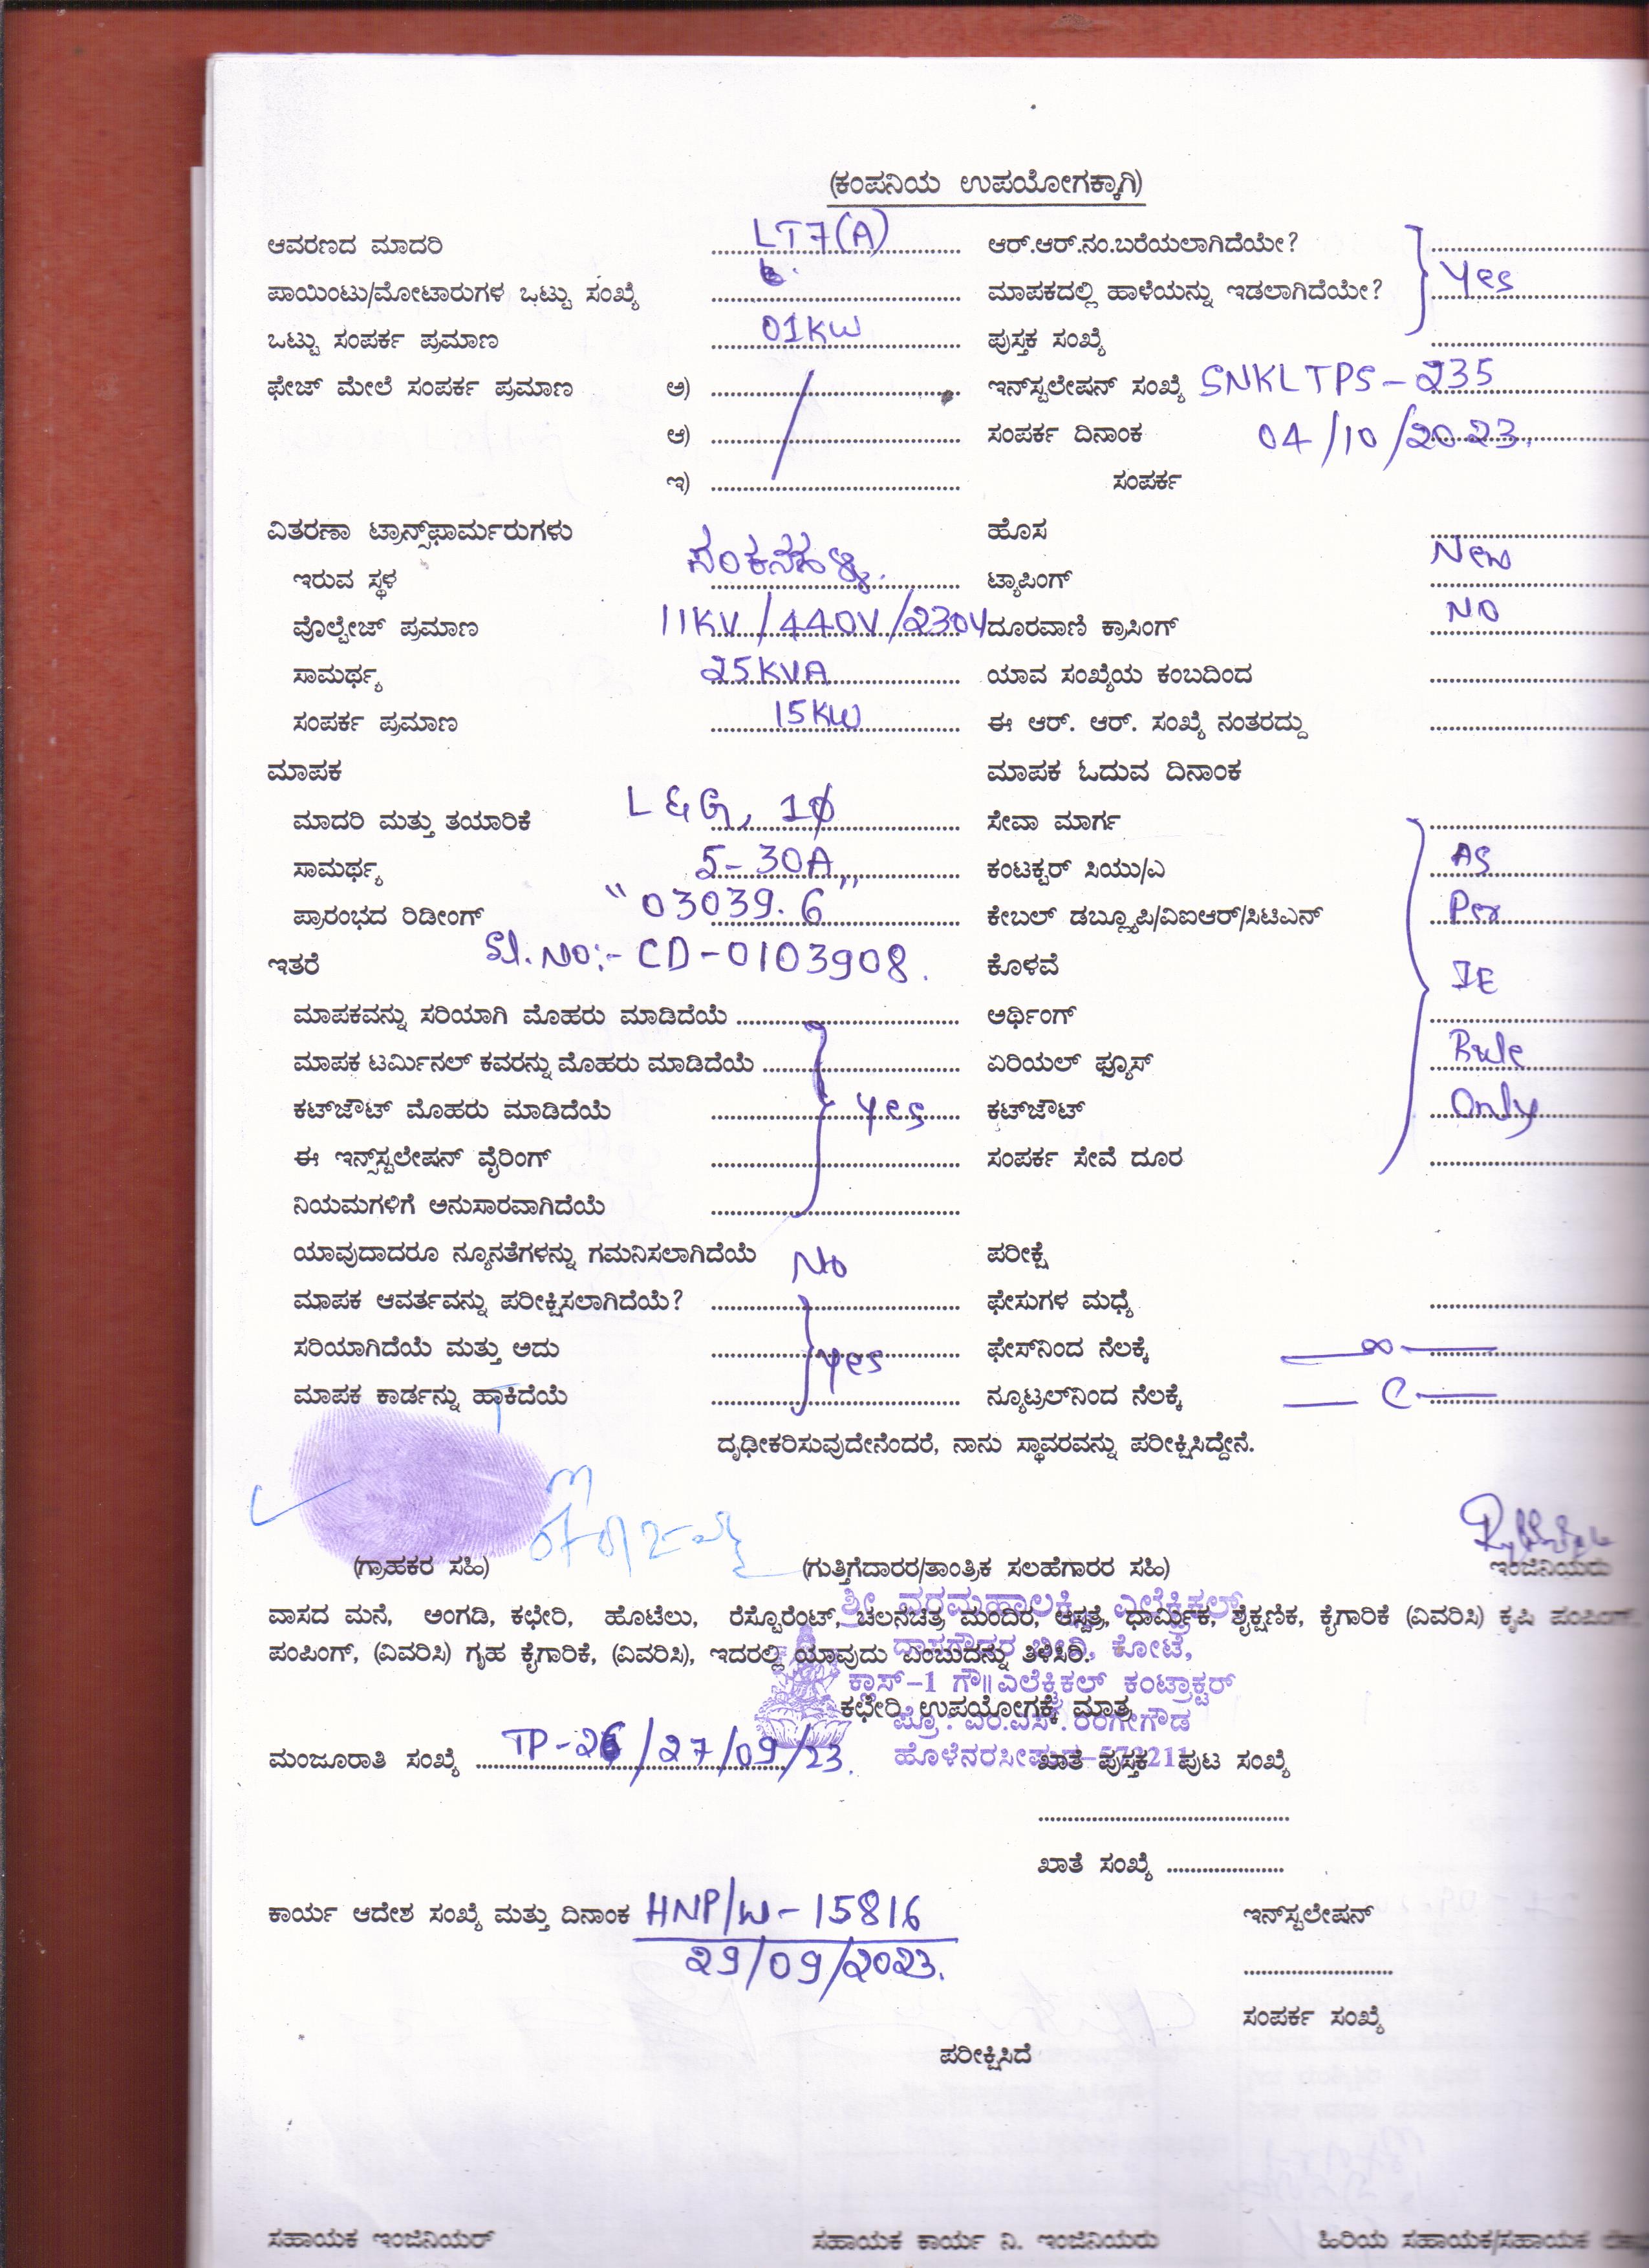 (ಕಂಪನಿಯ ಉಪಯೋಗಕ್ಕಾಗಿ)
ಆವರಣದ ಮಾದರಿ LT7(A) ಆರ್.ಆರ್.ನಂ.ಬರೆಯಲಾಗಿದೆಯೇ?
ಪಾಯಿಂಟು/ಮೋಟಾರುಗಳ ಒಟ್ಟು ಸಂಖ್ಯೆ ಮಾಪಕದಲ್ಲಿ ಹಾಳೆಯನ್ನು ಇಡಲಾಗಿದೆಯೇ? Yes
ಒಟ್ಟು ಸಂಪರ್ಕ ಪ್ರಮಾಣ 01KW ಪುಸ್ತಕ ಸಂಖ್ಯೆ
ಫೇಜ್ ಮೇಲೆ ಸಂಪರ್ಕ ಪ್ರಮಾಣ ಅ) ಇನ್‌ಸ್ಟಲೇಷನ್ ಸಂಖ್ಯೆ SNKLTPS-235
ಆ) ಸಂಪರ್ಕ ದಿನಾಂಕ 04/10/2023.
ಇ) ಸಂಪರ್ಕ
ವಿತರಣಾ ಟ್ರಾನ್ಸ್‌ಫಾರ್ಮರುಗಳು ಹೊಸ New
ಇರುವ ಸ್ಥಳ ಸಂಕನಹಳ್ಳಿ. ಟ್ಯಾಪಿಂಗ್
ವೊಲ್ಟೇಜ್ ಪ್ರಮಾಣ 11KV/440V/230V ದೂರವಾಣಿ ಕ್ರಾಸಿಂಗ್ NO
ಸಾಮರ್ಥ್ಯ 25KVA ಯಾವ ಸಂಖ್ಯೆಯ ಕಂಬದಿಂದ
ಸಂಪರ್ಕ ಪ್ರಮಾಣ 15KW ಈ ಆರ್. ಆರ್. ಸಂಖ್ಯೆ ನಂತರದ್ದು
ಮಾಪಕ ಮಾಪಕ ಓದುವ ದಿನಾಂಕ
ಮಾದರಿ ಮತ್ತು ತಯಾರಿಕೆ L&G, 1ϕ ಸೇವಾ ಮಾರ್ಗ
ಸಾಮರ್ಥ್ಯ 5-30A ಕಂಟಕ್ಟರ್ ಸಿಯು/ಎ AS
ಪ್ರಾರಂಭದ ರಿಡೀಂಗ್ "03039.6" ಕೇಬಲ್ ಡಬ್ಲ್ಯೂಪಿ/ವಿಐಆರ್/ಸಿಟಿಎನ್ Per
ಇತರೆ Sl. No:- CD-0103908. ಕೊಳವೆ IE
ಮಾಪಕವನ್ನು ಸರಿಯಾಗಿ ಮೊಹರು ಮಾಡಿದೆಯೆ ಅರ್ಥಿಂಗ್
ಮಾಪಕ ಟರ್ಮಿನಲ್ ಕವರನ್ನು ಮೊಹರು ಮಾಡಿದೆಯೆ ಏರಿಯಲ್ ಫ್ಯೂಸ್ Rule
ಕಟ್‌ಜೌಟ್ ಮೊಹರು ಮಾಡಿದೆಯೆ Yes ಕಟ್‌ಜೌಟ್ Only
ಈ ಇನ್ಸ್‌ಸ್ಟಲೇಷನ್ ವೈರಿಂಗ್ ಸಂಪರ್ಕ ಸೇವೆ ದೂರ
ನಿಯಮಗಳಿಗೆ ಅನುಸಾರವಾಗಿದೆಯೆ
ಯಾವುದಾದರೂ ನ್ಯೂನತೆಗಳನ್ನು ಗಮನಿಸಲಾಗಿದೆಯೆ No ಪರೀಕ್ಷೆ
ಮಾಪಕ ಆವರ್ತವನ್ನು ಪರೀಕ್ಷಿಸಲಾಗಿದೆಯೆ? ಫೇಸುಗಳ ಮಧ್ಯೆ
ಸರಿಯಾಗಿದೆಯೆ ಮತ್ತು ಅದು Yes ಫೇಸ್‌ನಿಂದ ನೆಲಕ್ಕೆ ∞
ಮಾಪಕ ಕಾರ್ಡನ್ನು ಹಾಕಿದೆಯೆ ನ್ಯೂಟ್ರಲ್‌ನಿಂದ ನೆಲಕ್ಕೆ
ದೃಢೀಕರಿಸುವುದೇನೆಂದರೆ, ನಾನು ಸ್ಥಾವರವನ್ನು ಪರೀಕ್ಷಿಸಿದ್ದೇನೆ.
(ಗ್ರಾಹಕರ ಸಹಿ) (ಗುತ್ತಿಗೆದಾರರ/ತಾಂತ್ರಿಕ ಸಲಹೆಗಾರರ ಸಹಿ) ಇಂಜಿನಿಯರು
ಶ್ರೀ ವರಮಹಾಲಕ್ಷ್ಮಿ ಎಲೆಕ್ಟ್ರಿಕಲ್
ವಾಸದ ಮನೆ, ಅಂಗಡಿ, ಕಛೇರಿ, ಹೊಟೆಲು, ರೆಸ್ಟೊರೆಂಟ್, ಚಲನಚಿತ್ರ ಮಂದಿರ, ಆಸ್ಪತ್ರೆ, ಧಾರ್ಮಿಕ, ಶೈಕ್ಷಣಿಕ, ಕೈಗಾರಿಕೆ (ವಿವರಿಸಿ) ಕೃಷಿ ಪಂಪಿಂಗ್,
ಬೀದಿ, ಕೋಟೆ,
ಪಂಪಿಂಗ್, (ವಿವರಿಸಿ) ಗೃಹ ಕೈಗಾರಿಕೆ, (ವಿವರಿಸಿ), ಇದರಲ್ಲಿ ಯಾವುದು ಎಂಬುದನ್ನು ತಿಳಿಸಿರಿ.
ಕ್ಲಾಸ್-1 ಗೌ॥ ಎಲೆಕ್ಟ್ರಿಕಲ್ ಕಂಟ್ರಾಕ್ಟರ್
ಕಛೇರಿ ಉಪಯೋಗಕ್ಕೆ ಮಾತ್ರ
ಪ್ರೊ : ಎಂ.ಎಸ್. ರಂಗೇಗೌಡ
ಹೊಳೆನರಸೀಪುರ-573211
ಮಂಜೂರಾತಿ ಸಂಖ್ಯೆ TP-26/27/09/23. ಖಾತೆ ಪುಸ್ತಕ ಪುಟ ಸಂಖ್ಯೆ
ಖಾತೆ ಸಂಖ್ಯೆ
ಕಾರ್ಯ ಆದೇಶ ಸಂಖ್ಯೆ ಮತ್ತು ದಿನಾಂಕ HNP/W-15816 ಇನ್‌ಸ್ಟಲೇಷನ್
29/09/2023.
ಸಂಪರ್ಕ ಸಂಖ್ಯೆ
ಪರೀಕ್ಷಿಸಿದೆ
ಸಹಾಯಕ ಇಂಜಿನಿಯರ್ ಸಹಾಯಕ ಕಾರ್ಯ ನಿ. ಇಂಜಿನಿಯರು ಹಿರಿಯ ಸಹಾಯಕ/ಸಹಾಯಕ